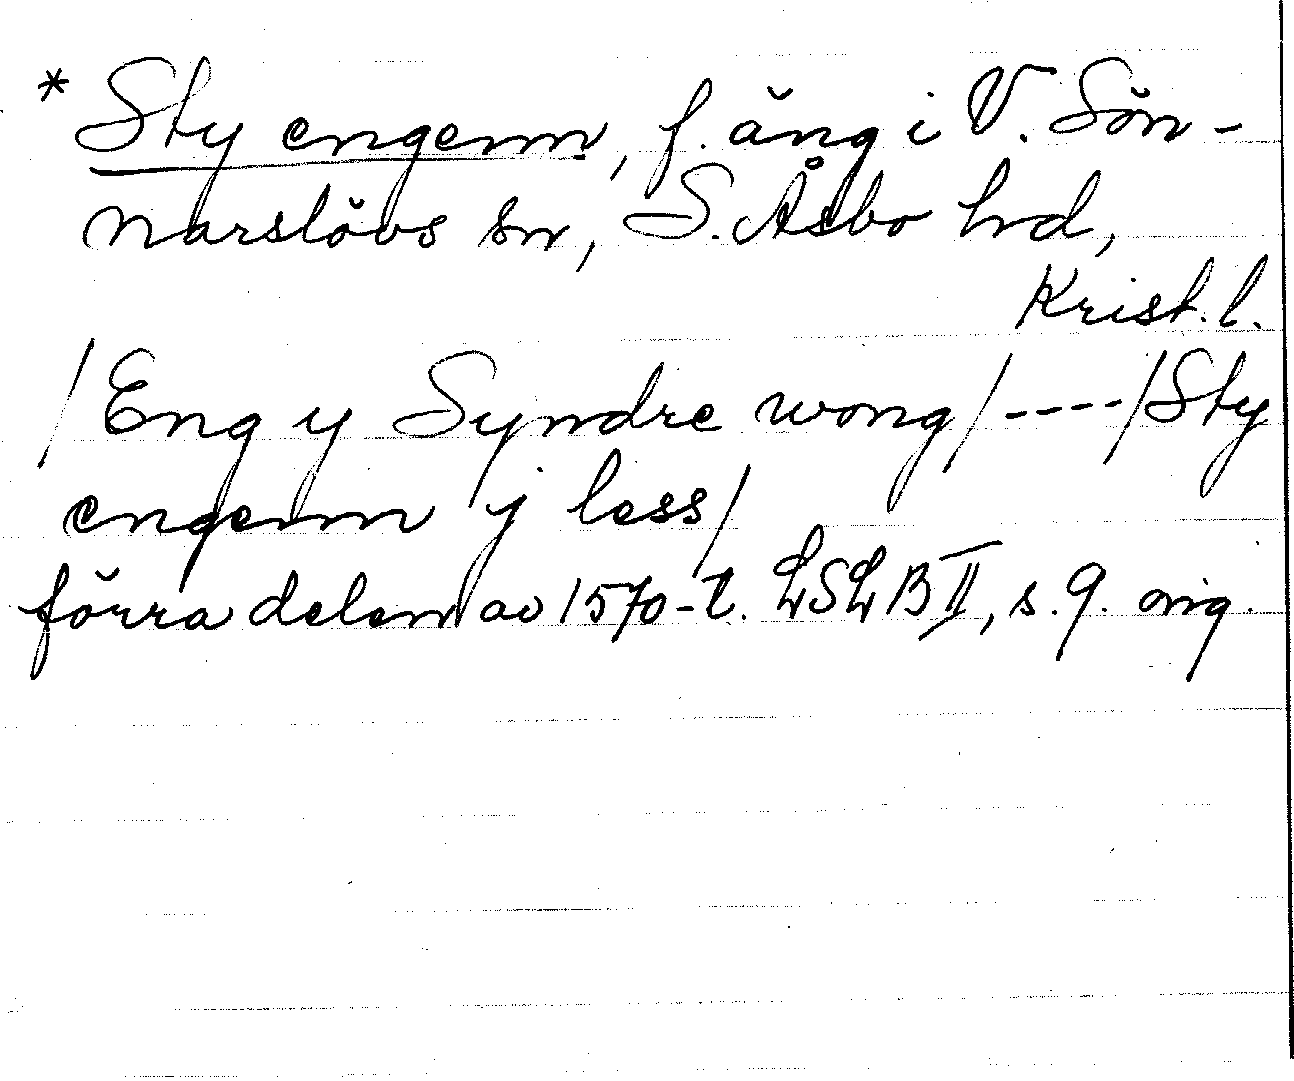 * Sty engenn, f. äng i V. Sön-
narslövs sn, S. Åsbo hd,
Krist. l.
/Eng y Syndre wong/----/Sty
engenn j less/
förra delen av 1570-t. LSLB II, s. 9. orig.